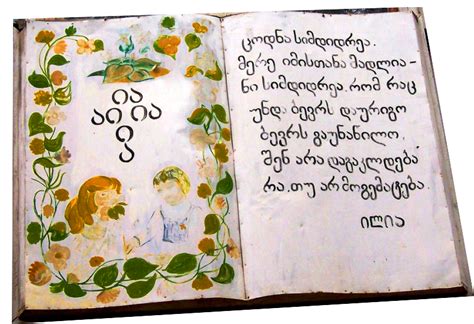 ია
აი ია
ი
ა
ცოდნა სიმდიდრეა.
მერე იმისთანა მადლია-
ნი სიმდიდრეა, რომ რაც
უნდა ბევრს დაურიგო
ბევრს გაუნაწილო,
შენ არა დაგაკლდება
რა, თუ არ მოგემატება.
ილია